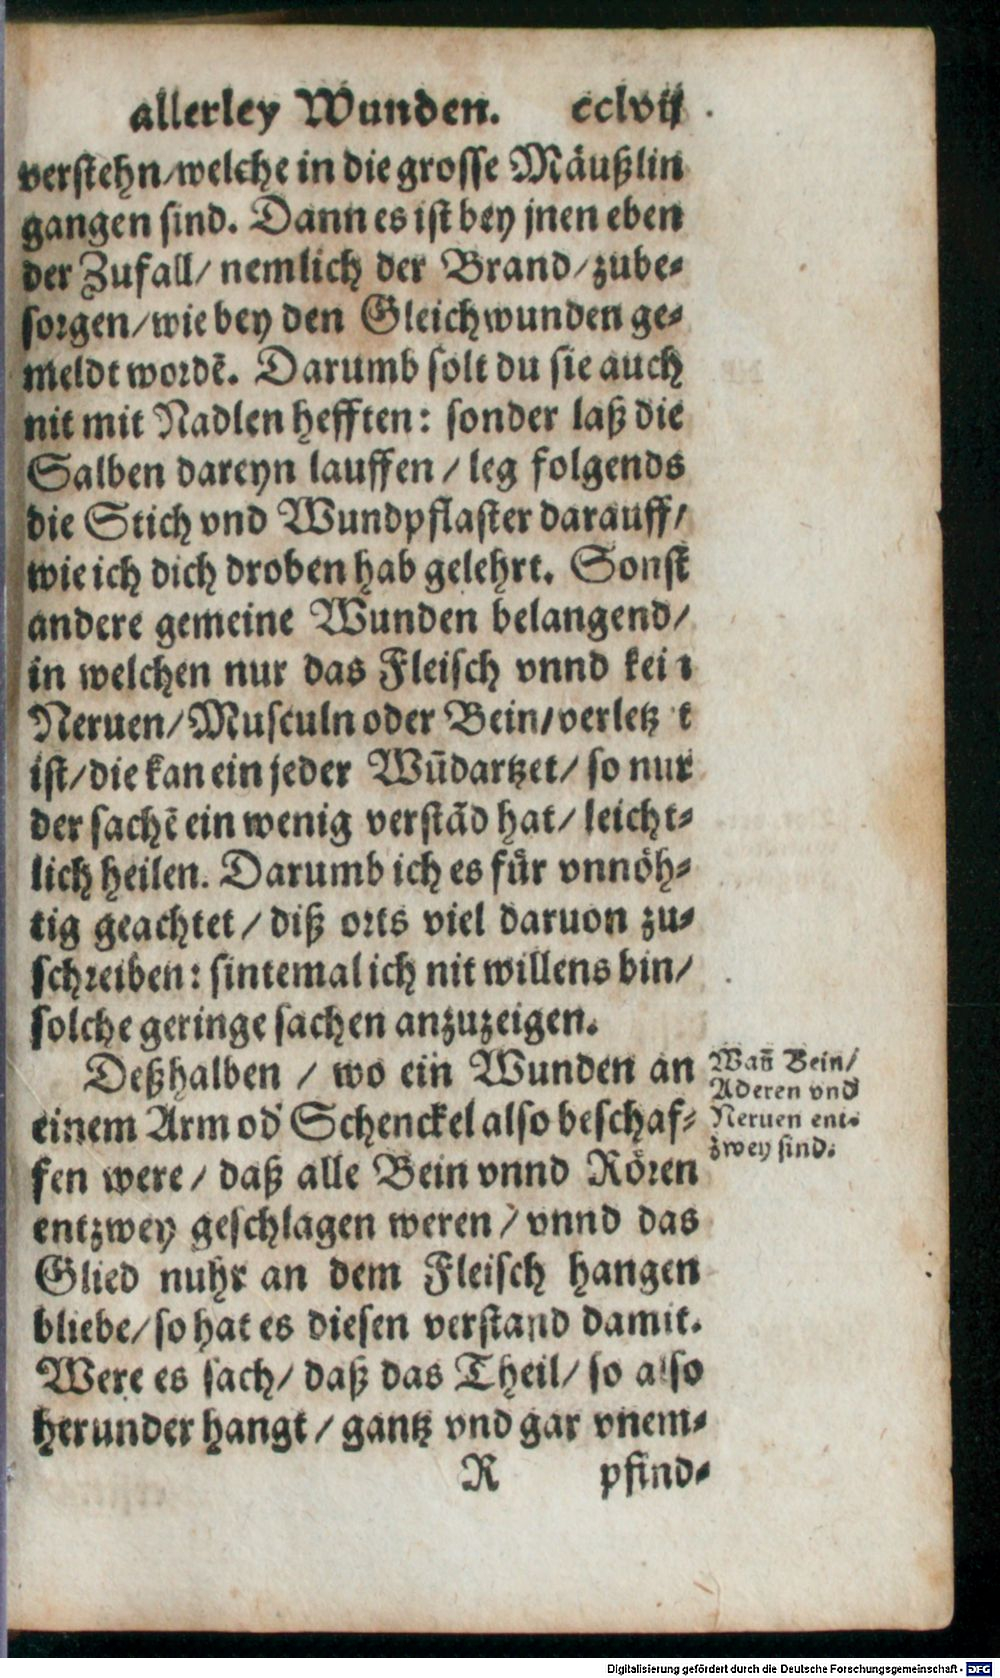 allerley Wunden. cclvij
verstehn/welche in die grosse Mäußlin
gangen sind. Dann es ist bey jnen eben
der Zufall/ nemlich der Brand/zube-
sorgen/wie bey den Gleichwunden ge-
meldt wordẽ. Darumb solt du sie auch
nit mit Nadlen hefften: sonder laß die
Salben dareyn lauffen/ leg folgends
die Stich vnd Wundpflaster darauff/
wie ich dich droben hab gelehrt. Sonst
andere gemeine Wunden belangend/
in welchen nur das Fleisch vnnd kein
Neruen/Musculn oder Bein/verletzt
ist/die kan ein jeder Wũdartzet/ so nur
der sachẽ ein wenig verstãd hat/ leicht-
lich heilen. Darumb ich es für vnnöh-
tig geachtet/ diß orts viel daruon zu-
schreiben: sintemal ich nit willens bin/
solche geringe sachen anzuzeigen.
Deßhalben / wo ein Wunden an
einem Arm od' Schenckel also beschaf-
fen were/ daß alle Bein vnnd Rören
entzwey geschlagen weren/ vnnd das
Glied nuhr an dem Fleisch hangen
bliebe/so hat es diesen verstand damit.
Were es sach/ daß das Theil/ so also
herunder hangt/ gantz vnd gar vnem-
R pfind-
Wañ Bein/
Aderen vnd
Neruen ent-
zwey sind.
Digitalisierung gefördert durch die Deutsche Forschungsgemeinschaft - DFG